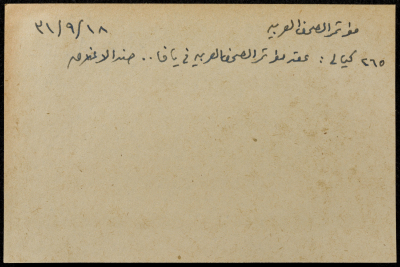 مؤتمر الصحف العربيه ٣١/٩/١٨
٢٦٥ كيالي : عقد مؤتمر الصحف العربيه في يافا .. ضد الاغلاق